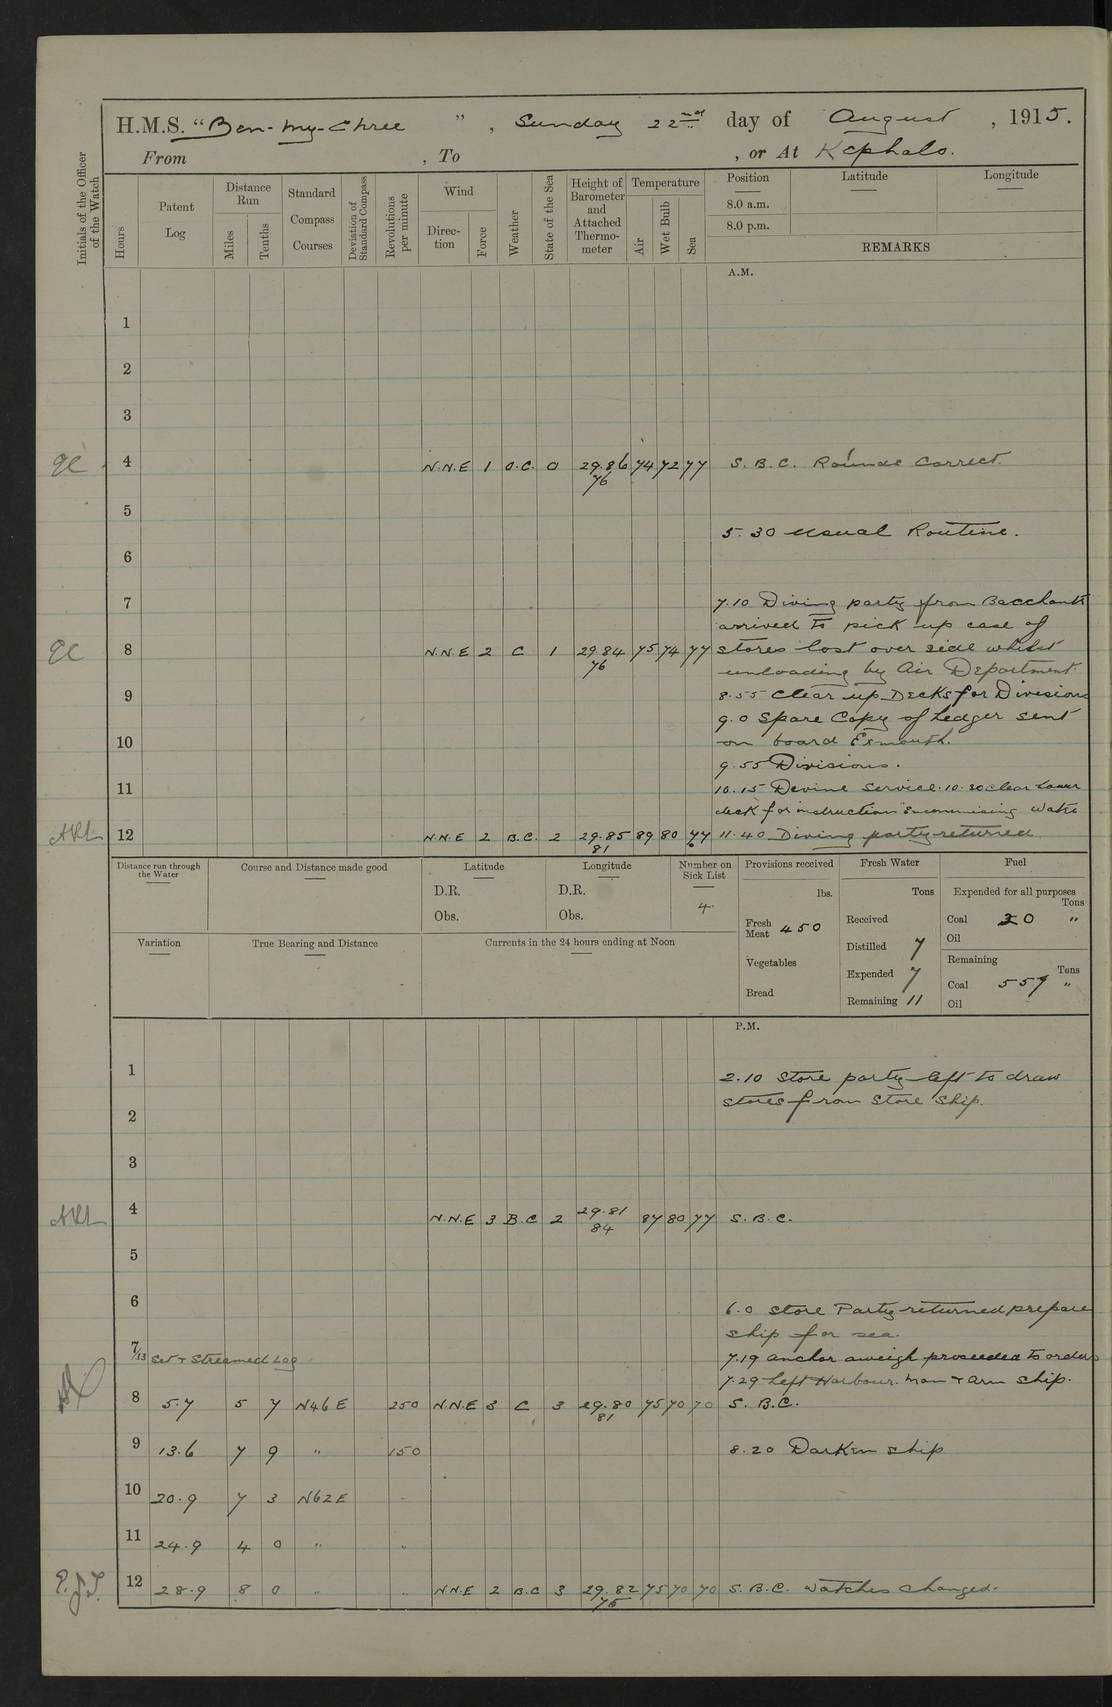 H.M.S. "Ben-my-Chree", Sunday 22nd day of August, 1915.
From , To , or At Kephalo.
Initials of the Officer of the Watch
Hours
Patent Log
Distance Run
Miles
Tenths
Standard Compass Courses
Deviation of Standard Compass
Revolutions per minute
Wind
Direction
Force
Weather
State of the Sea
Height of Barometer and Attached Thermometer
Temperature
Air
Wet Bulb
Sea
Position
8.0 a.m.
8.0 p.m.
Latitude
Longitude
REMARKS
A.M.
1
2
3
4 N.N.E 1 O.C. 0 29.86 76 74 72 77 S.B.C. Rounds Correct.
5
5.30 usual Routine.
6
7 7.10 Diving party from Bacchante
arrived to pick up case of
8 N.N.E 2 C 1 29.84 76 75 74 77 stores lost over side whilst
unloading by Air Department
9 8.55 Clear up Decks for Divisions
9.0 Spare Copy of Ledger sent
10 on board Exmouth.
9.55 Divisions.
11 10.15 Devine Service. 10.30 clear Lower
deck for instruction Economising Water
12 N.N.E 2 B.C. 2 29.85 81 89 80 77 11.40 Diving party returned
Distance run through the Water
Course and Distance made good
Latitude
D.R.
Obs.
Longitude
D.R.
Obs.
Number on Sick List
4
Provisions received
lbs.
Fresh Meat 450
Vegetables
Bread
Fresh Water
Tons
Received
Distilled 7
Expended 7
Remaining 11
Fuel
Expended for all purposes
Tons
Coal 30 "
Oil
Remaining
Tons
Coal 557 "
Oil
Variation
True Bearing and Distance
Currents in the 24 hours ending at Noon
P.M.
1 2.10 Store party left to draw
stores from Store Ship.
2
3
4 N.N.E 3 B.C 2 29.81 84 87 80 77 S.B.C.
5
6 6.0 Store Party returned prepare
ship for sea.
7/33 Set + Streamed Log 7.19 anchor aweigh proceeded to orders
7.29 Left Harbour. Man + arm ship.
8 5.7 5 7 N46E 250 N.N.E 3 C 3 29.80 81 75 70 70 S.B.C.
9 13.6 7 9 " 150 8.20 Darken ship
10 20.9 7 3 N62E "
11 24.9 4 0 " "
P.J.T. 12 28.9 8 0 " " N.N.E 2 B.C 3 29.82 75 75 70 70 S.B.C. Watches Changed.